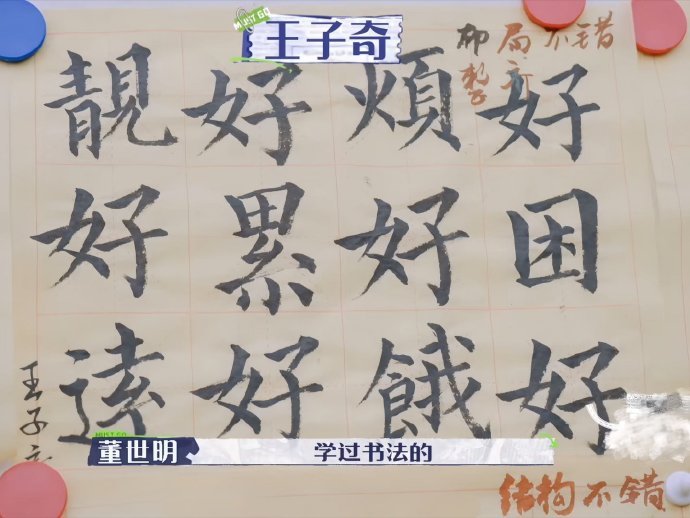 MUST GO
王子奇
局不错
好困好
煩好餓
好累好
靚好遠
王子
结构不错
MUST GO
董世明
学过书法的